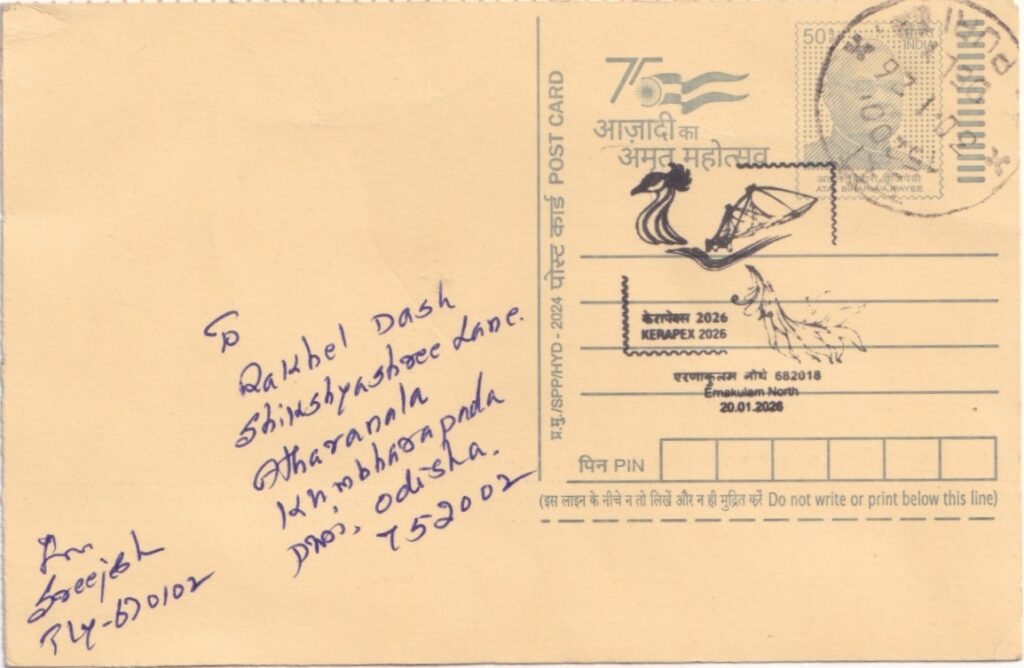 To
Rakhel Dash
Shikshyashree Lane.
Atharanala
Khmbharapada
Odisha.
752002
From
Sreejesh
Tly-670102
प्र.मु./SPP/HYD - 2024 पोस्ट कार्ड POST CARD
75
आज़ादी का
अमृत महोत्सव
50
भारत
INDIA
ATAL BIHARI VAJPAYEE
केरापेक्स 2026
KERAPEX 2026
एरणाकुलम नौर्थ 682018
Ernakulam North
20.01.2026
पिन PIN
(इस लाइन के नीचे न तो लिखें और न ही मुद्रित करें Do not write or print below this line)